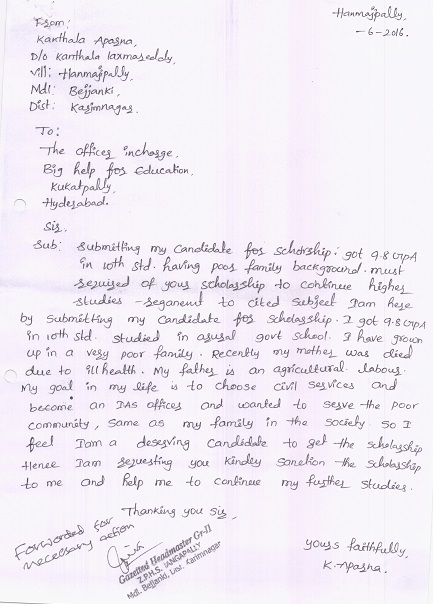 Hanmajpally,
-6-2016.
From:
Kanthala Aparna,
D/o Kanthala laxmareddy,
Vill: Hanmajpally,
Mdl: Bejjanki,
Dist: Karimnagar.
To:
The officer incharge,
Big help for Education,
Kukatpally,
Hyderabad.
Sir,
Sub: Submitting my Candidate for Scholrship: got 9.8 GPA
in 10th std. having poor family background. must
required of your scholarship to continue higher
studies - reganent to cited subject Iam here
by submitting my Candidate for Scholarship. I got 9.8 GPA
in 10th std. studied in arural govt School. I have grown
up in a very poor family. Recently my mother was died
due to ill health. My father is an agricultural labour.
My goal in my life is to choose civil services and
become an IAS officer and wanted to serve the poor
community, same as my family in the society. So I
feel Iam a deserving Candidate to get the scholarship
Hence Iam requesting you kindey sanction the scholarship
to me and help me to continue my further studies.
Thanking you Sir,
Forwarded for
necessary action
Gazetted Headmaster Gr-II
Z.P.H.S.
Mdl. Bejjanki, Karimnagar
yours faithfully,
K. Aparna.